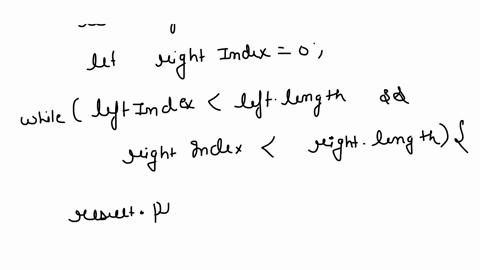 let right Index = 0;
while ( left Index < left.length &&
right Index < right.length) {
result. p